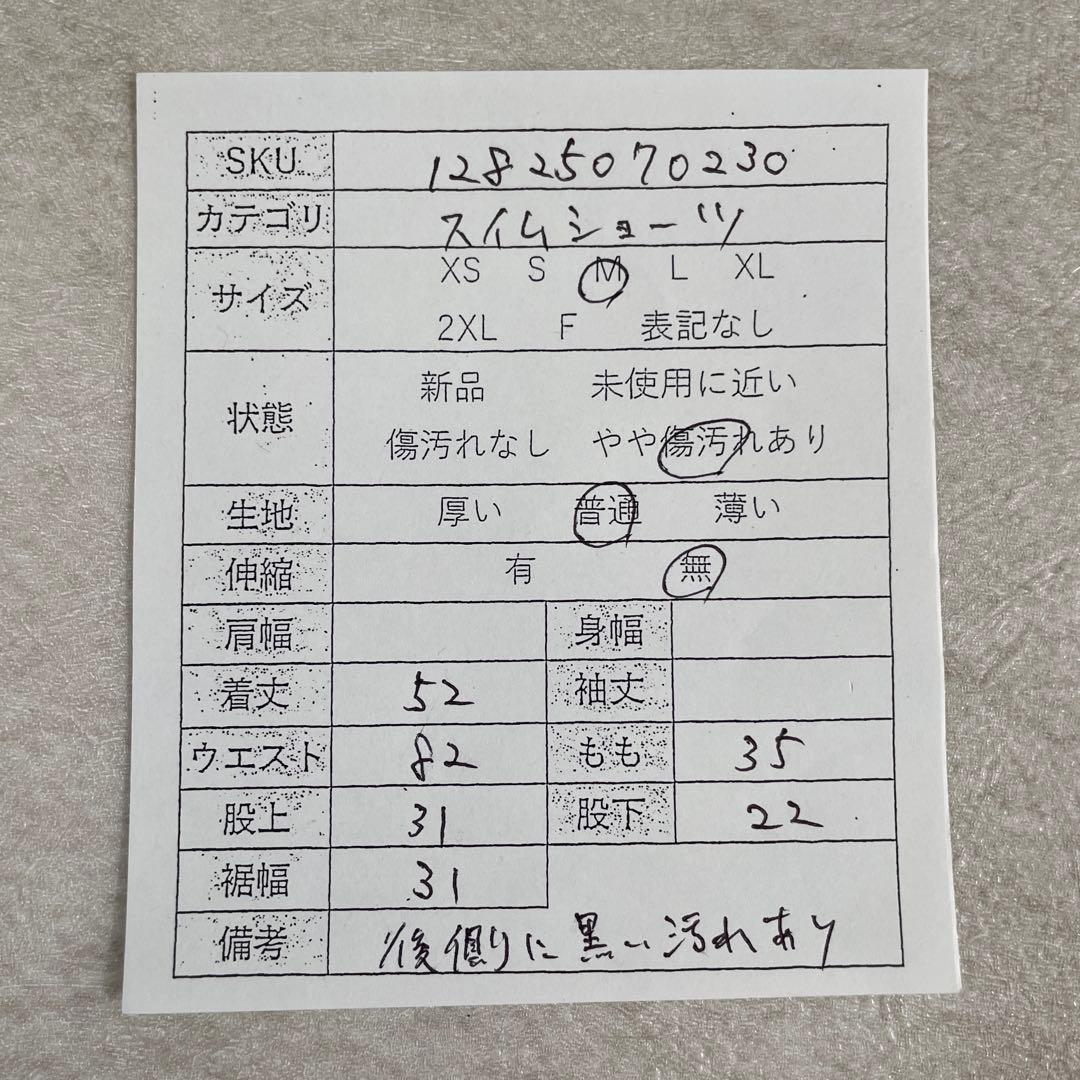 SKU 12825070230
カテゴリ スイムショーツ
サイズ XS S M L XL
2XL F 表記なし
状態 新品 未使用に近い
傷汚れなし やや傷汚れあり
生地 厚い 普通 薄い
伸縮 有 無
肩幅 身幅
着丈 52 袖丈
ウエスト 82 もも 35
股上 31 股下 22
裾幅 31
備考 後側りに黒い汚れあり